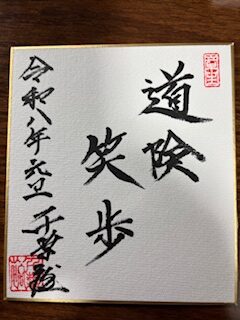 道険
笑歩
令和八年元旦